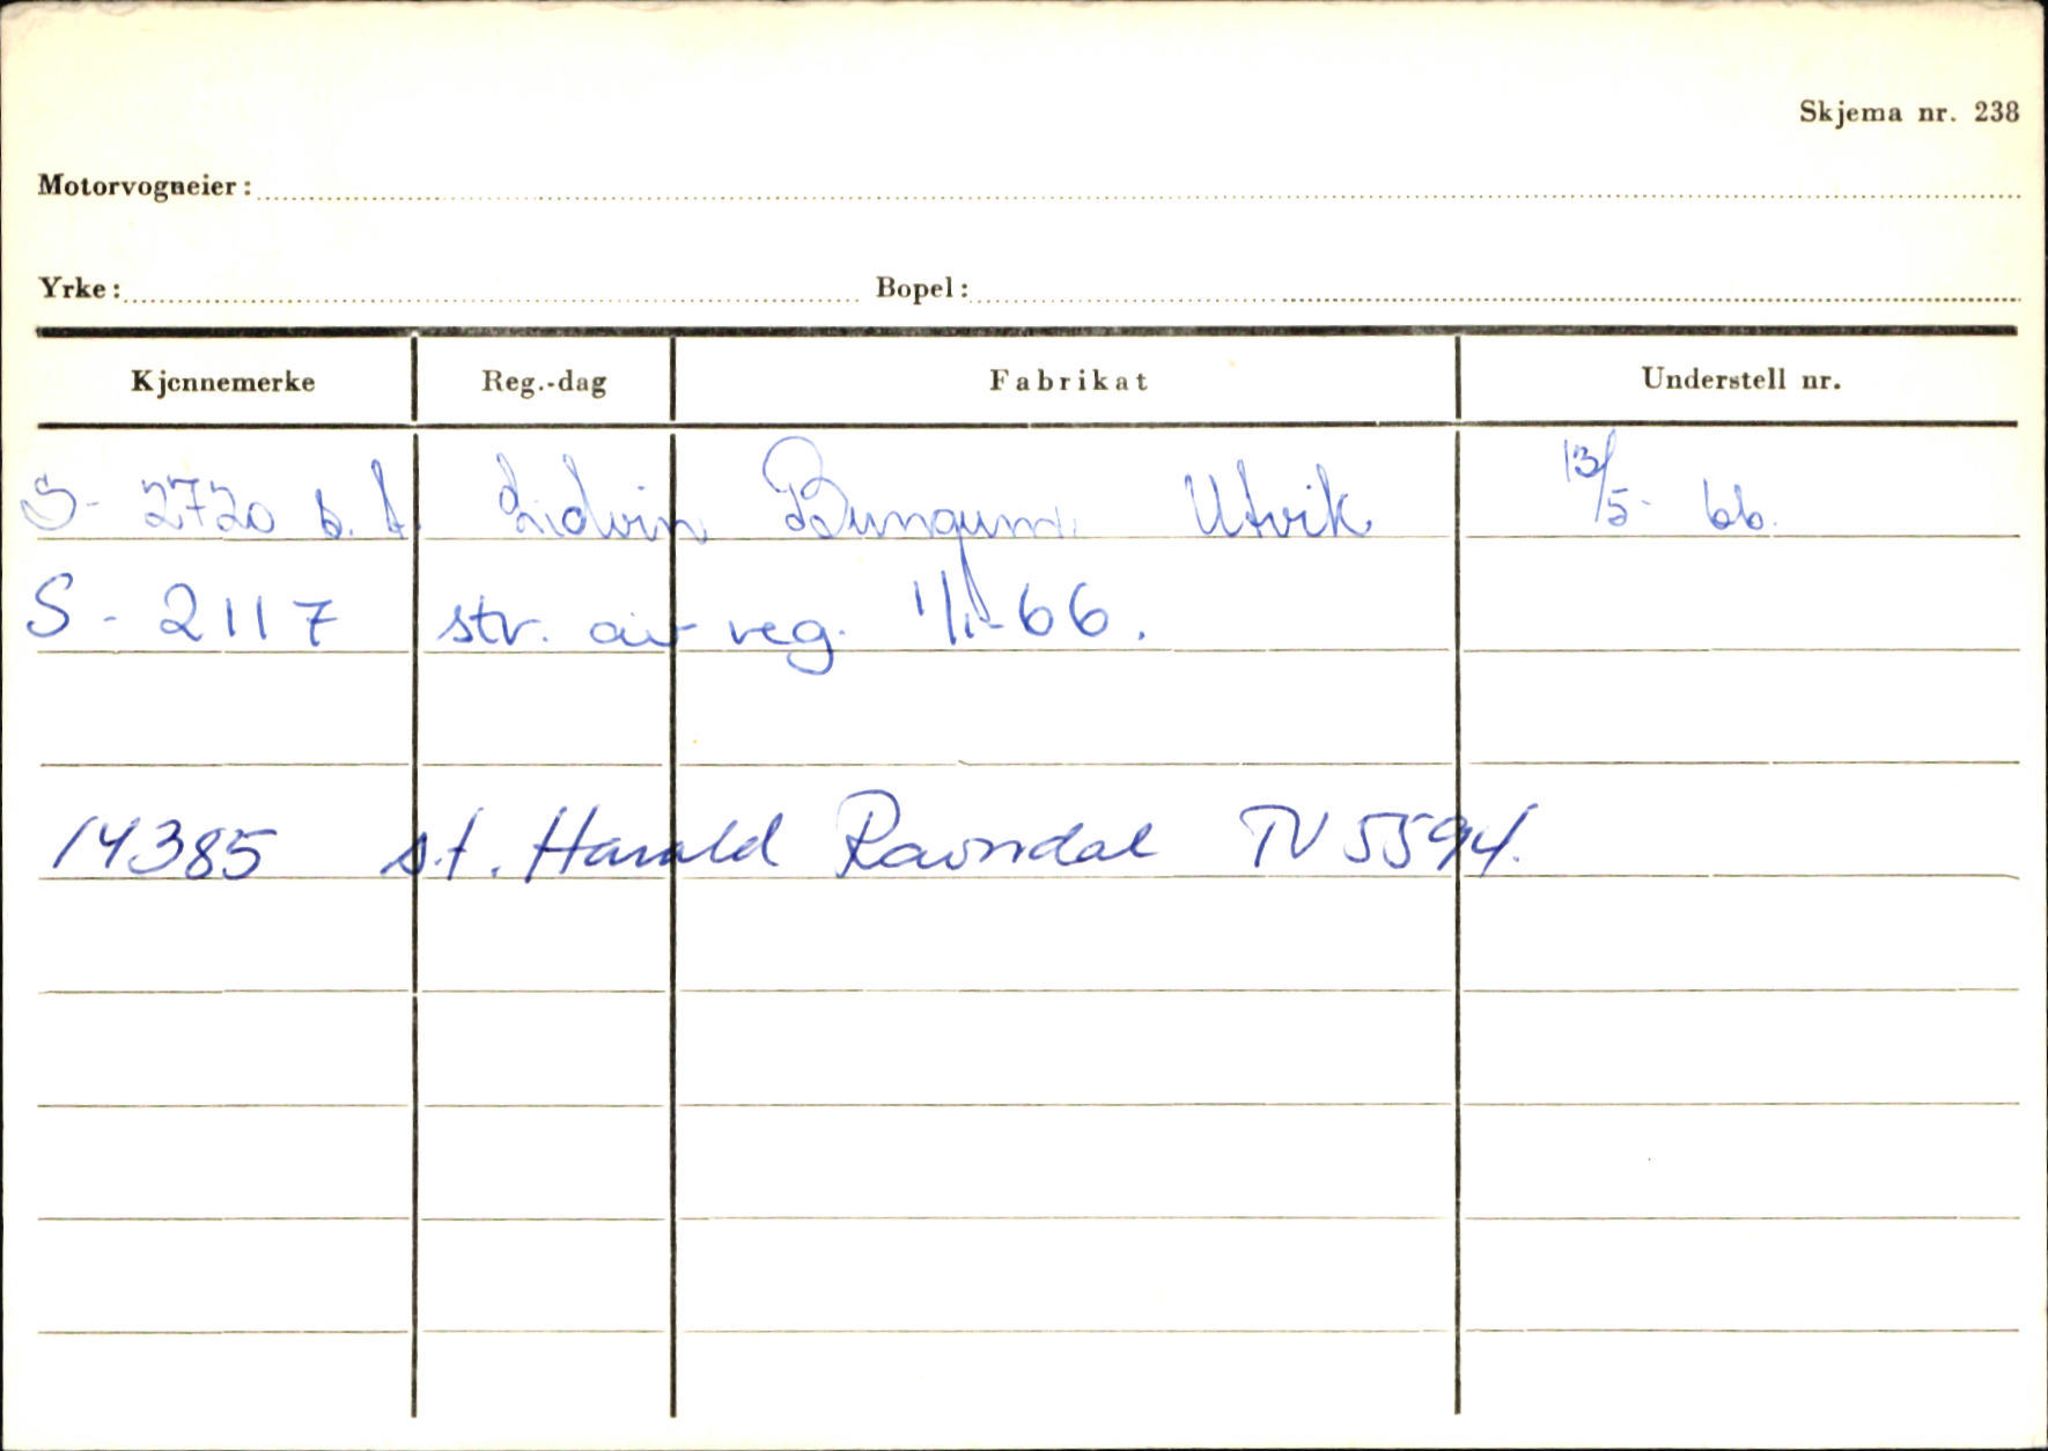 Skjema nr. 238
Motorvogneier:
Yrke: Bopel:
Kjennemerke Reg.-dag Fabrikat Understell nr.
S- 2720 s.t. Lidvin Bungum Utvik 13/5- 66.
S- 2117 str. av reg. 1/1-66.
14385 s.t. Harald Ravndal TV 5594.